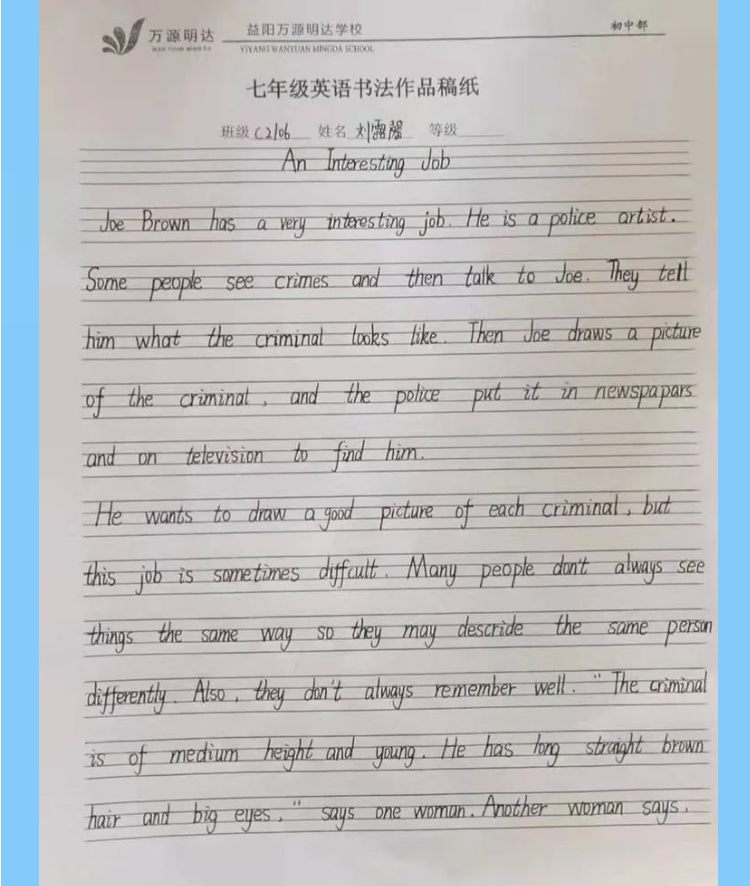 万源明达
WAN YUAN MING DA
益阳万源明达学校
YIYANG WANYUAN MINGDA SCHOOL
初中部
七年级英语书法作品稿纸
班级 C2106 姓名 刘露馨 等级
An Interesting Job
Joe Brown has a very interesting job. He is a police artist.
Some people see crimes and then talk to Joe. They tell
him what the criminal looks like. Then Joe draws a picture
of the criminal, and the police put it in newspapars
and on television to find him.
He wants to draw a good picture of each criminal, but
this job is sometimes diffcult. Many people don't always see
things the same way so they may descride the same person
differently. Also, they don't always remember well. "The criminal
is of medium height and young. He has long straight brown
hair and big eyes," says one woman. Another woman says,